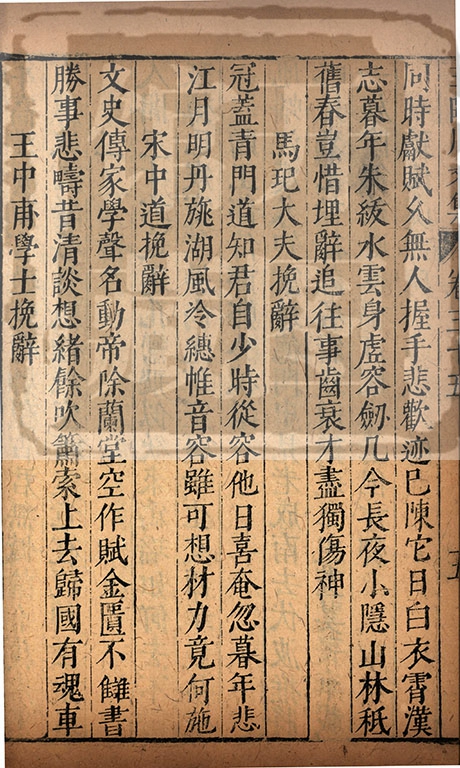 同時獻賦久無人握手悲歡迹已陳它日白衣霄漢
志暮年朱紱水雲身虛容劒几今長夜小隱山林秪
舊春豈惜埋辭追往事齒衰才盡獨傷神
馬玘大夫挽辭
冠蓋青門道知君自少時從容他日喜奄忽暮年悲
江月明丹旐湖風冷繐帷音容雖可想材力竟何施
宋中道挽辭
文史傳家學聲名動帝除蘭堂空作賦金匱不讎書
勝事悲疇昔清談想緒餘吹簫索上去歸國有魂車
王中甫學士挽辭